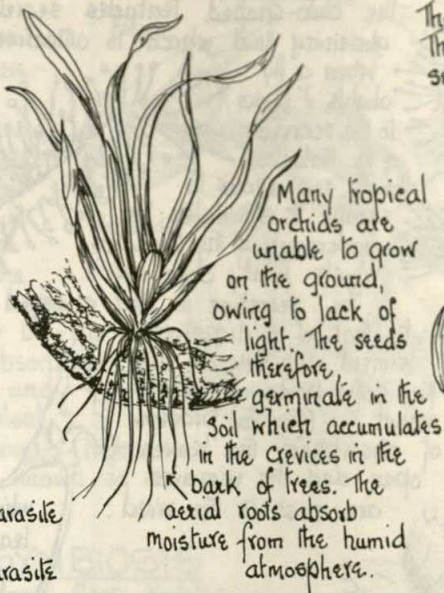 Th
Th
s
Many tropical
orchids are
unable to grow
on the ground,
owing to lack of
light. The seeds
therefore,
germinate in the
soil which accumulates
in the crevices in the
bark of trees. The
aerial roots absorb
moisture from the humid
atmosphere.
arasite
rasite